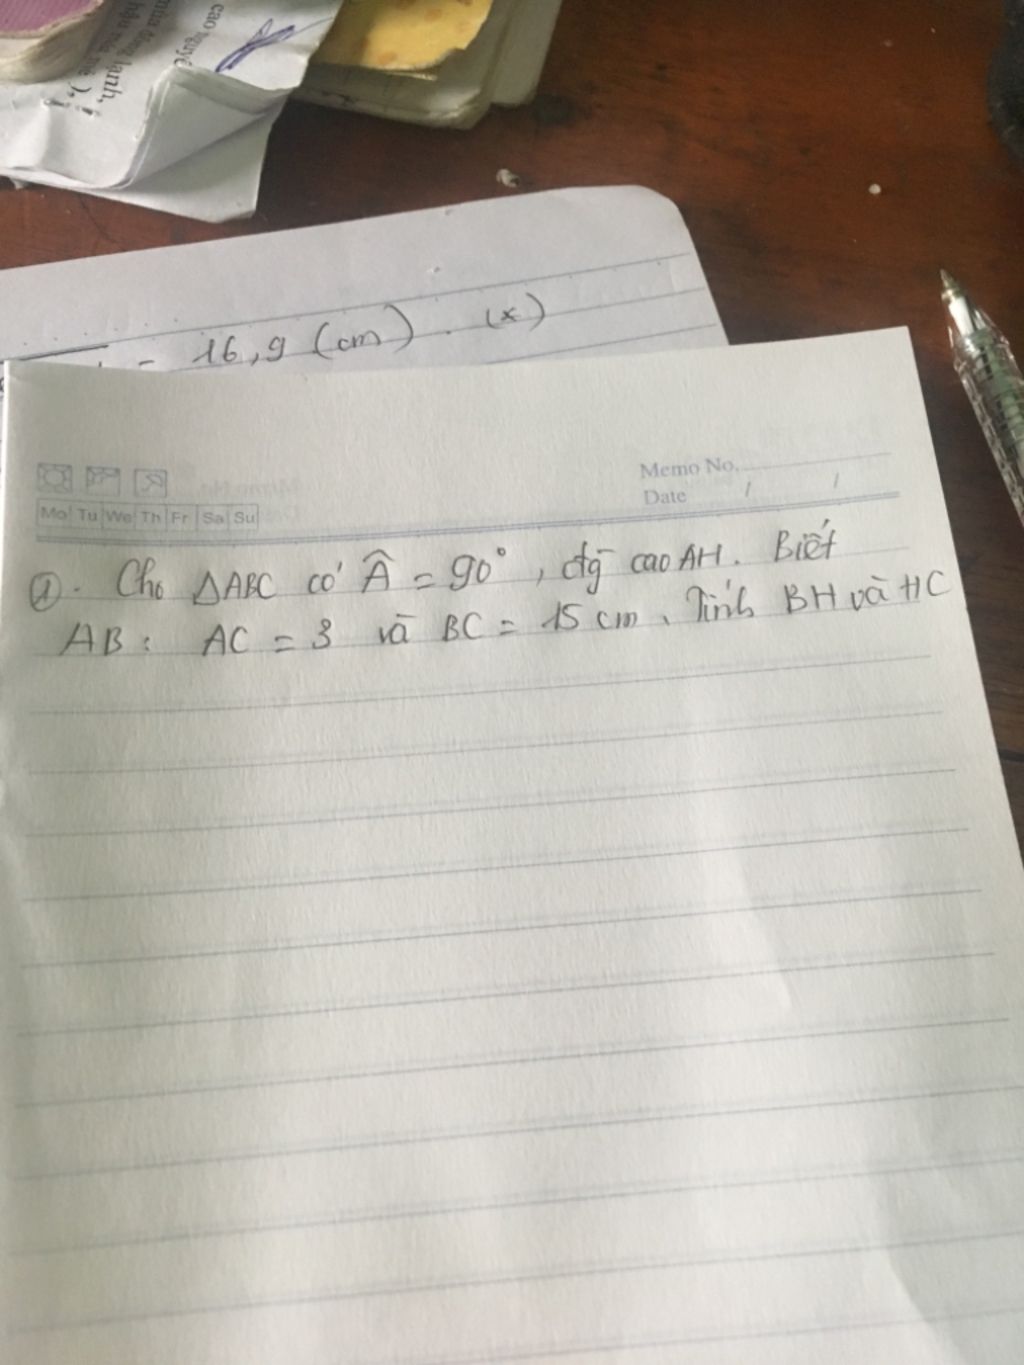 cao nguyê
mùa đông lạnh,
16,9 (cm). (x)
Memo No.
Date / /
Mo Tu We Th Fr Sa Su
①. Cho △ABC có Â = 90°, đg cao AH. Biết
AB : AC = 3 và BC = 15 cm. Tính BH và HC